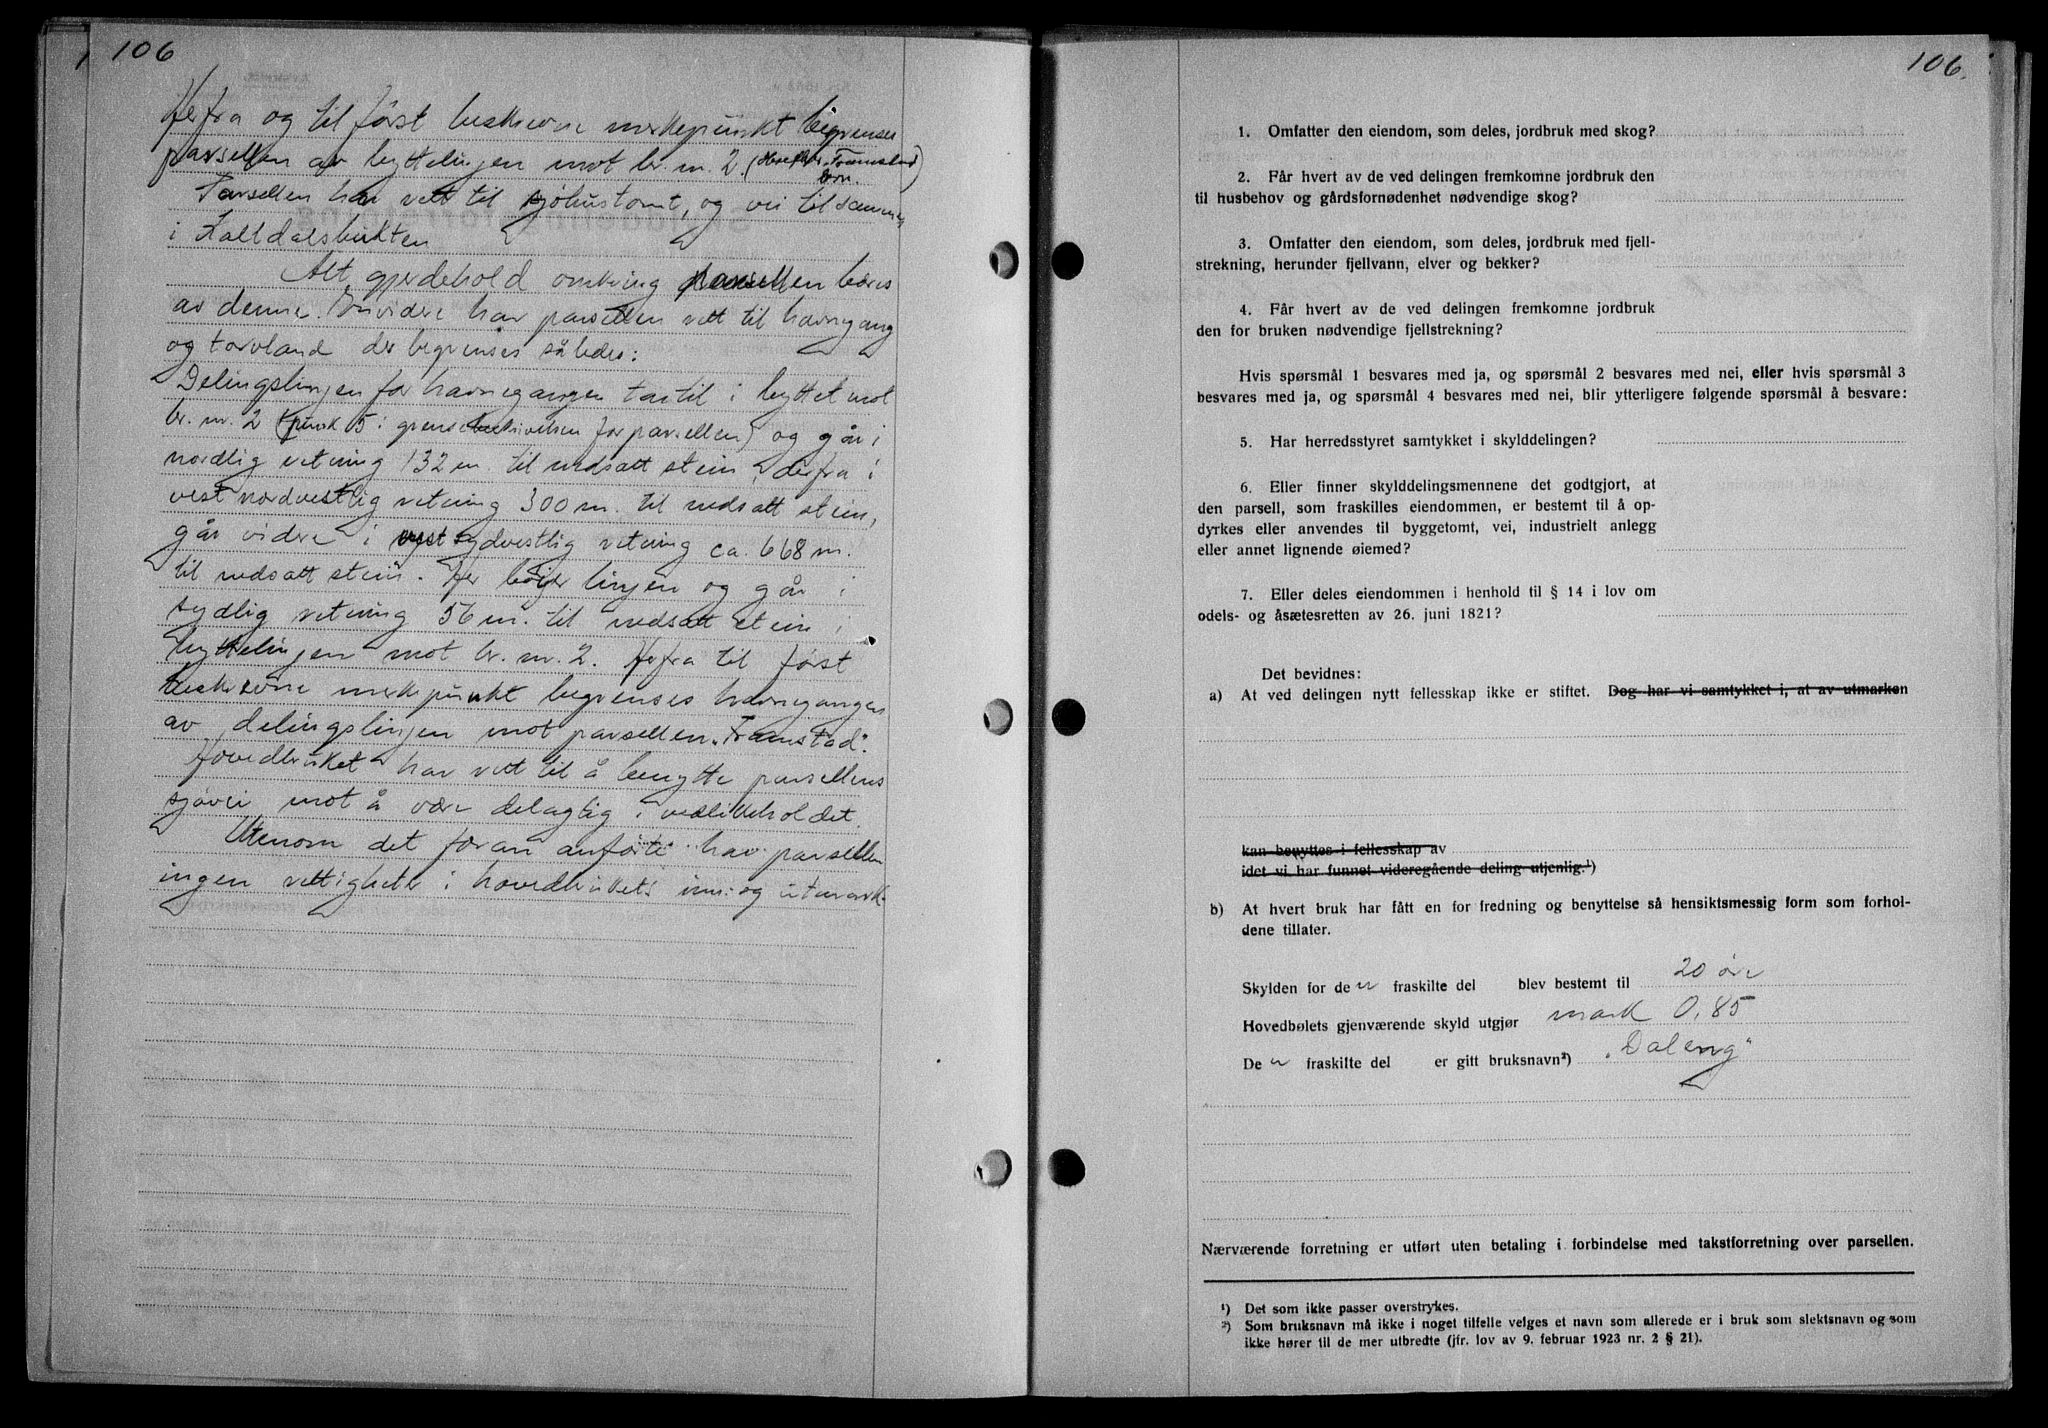 106
Herfra og til först beskrevne merkepunkt begrenses
parsellen av byttelinjen mot br. nr. 2.
Parsellen har rett til sjöhustomt, og vei til samme
i Kaltdalsbukten
Alt gjerdehold omkring parsellen bæres
av denne. Envidere har parsellen rett til havnegang
og torvland der begrenses således:
Delingslinjen for havnegangen tar til i byttet mot
br. nr. 2 (punk 5 i grensebeskrivelsen for parsellen) og går i
nordlig retning 132 m. til nedsatt stein, derfra i
vest nordvestlig retning 300 m. til nedsatt stein,
går videre i vest sydvestlig retning ca. 668 m.
til nedsatt stein. Her böier linjen og går i
sydlig retning 56 m. til nedsatt stein i
byttelinjen mot br. nr. 2. Herfra til först
beskrevne merkepunkt begrenses havnegangen
av delingslinjen mot parsellen „Framstad“.
Hovedbruket har rett til å benytte parsellens
sjövei mot å være delagtig i vedlikeholdet.
Utenom det foran anförte har parsellen
ingen rettigheter i hovedbrukets inn- og utmark.
106.
1. Omfatter den eiendom, som deles, jordbruk med skog?
2. Får hvert av de ved delingen fremkomne jordbruk den
til husbehov og gårdsfornødenhet nødvendige skog?
3. Omfatter den eiendom, som deles, jordbruk med fjell-
strekning, herunder fjellvann, elver og bekker?
4. Får hvert av de ved delingen fremkomne jordbruk
den for bruken nødvendige fjellstrekning?
Hvis spørsmål 1 besvares med ja, og spørsmål 2 besvares med nei, eller hvis spørsmål 3
besvares med ja, og spørsmål 4 besvares med nei, blir ytterligere følgende spørsmål å besvare:
5. Har herredsstyret samtykket i skylddelingen?
6. Eller finner skylddelingsmennene det godtgjort, at
den parsell, som fraskilles eiendommen, er bestemt til å op-
dyrkes eller anvendes til byggetomt, vei, industrielt anlegg
eller annet lignende øiemed?
7. Eller deles eiendommen i henhold til § 14 i lov om
odels- og åsætesretten av 26. juni 1821?
Det bevidnes:
a) At ved delingen nytt fellesskap ikke er stiftet. Dog har vi samtykket i, at av utmarken
kan benyttes i fellesskap av
idet vi har funnet videregående deling utjenlig.¹)
b) At hvert bruk har fått en for fredning og benyttelse så hensiktsmessig form som forhol-
dene tillater.
Skylden for den fraskilte del blev bestemt til 20 öre
Hovedbølets gjenværende skyld utgjør mark 0,85
Den fraskilte del er gitt bruksnavn²) „Daleng“
Nærværende forretning er utført uten betaling i forbindelse med takstforretning over parsellen.
¹) Det som ikke passer overstrykes.
²) Som bruksnavn må ikke i noget tilfelle velges et navn som allerede er i bruk som slektsnavn og som
ikke hører til de mer utbredte (jfr. lov av 9. februar 1923 nr. 2 § 21).